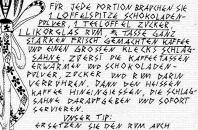 FÜR JEDE PORTION BRAUCHEN SIE
1 LÖFFELSPITZE SCHOKOLADEN-
PULVER, 1 TEELÖFFEL ZUCKER
1 LIKÖRGLAS RUM, 1 TASSE GANZ
STARKEN FRISCH GEMACHTEN KAFFEE
UND EINEN GROSSEN KLECKS SCHLAG-
SAHNE, ZUERST DIE KAFFEETASSEN
ERWÄRMEN UND SCHOKOLADEN-
PULVER, ZUCKER UND RUM DARIN
VERRÜHREN, DANN DEN HEISSEN
KAFFEE HINEINGIESSEN, DIE SCHLAG-
SAHNE DARAUFGEBEN UND SOFORT
SERVIEREN.
UNSER TIP:
ERSETZEN SIE DEN RUM AUCH